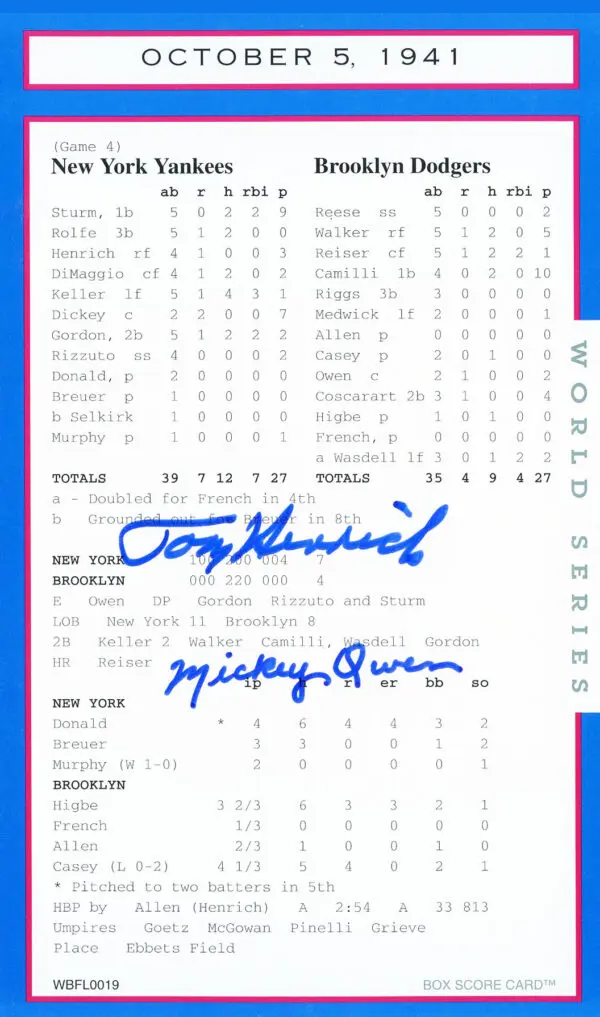 OCTOBER 5, 1941
(Game 4)
New York Yankees
ab r h rbi p
Sturm, 1b 5 0 2 2 9
Rolfe 3b 5 1 2 0 0
Henrich rf 4 1 0 0 3
DiMaggio cf 4 1 2 0 2
Keller lf 5 1 4 3 1
Dickey c 2 2 0 0 7
Gordon, 2b 5 1 2 2 2
Rizzuto ss 4 0 0 0 2
Donald, p 2 0 0 0 0
Breuer p 1 0 0 0 0
b Selkirk 1 0 0 0 0
Murphy p 1 0 0 0 1
TOTALS 39 7 12 7 27
Brooklyn Dodgers
ab r h rbi p
Reese ss 5 0 0 0 2
Walker rf 5 1 2 0 5
Reiser cf 5 1 2 2 1
Camilli 1b 4 0 2 0 10
Riggs 3b 3 0 0 0 0
Medwick lf 2 0 0 0 1
Allen p 0 0 0 0 0
Casey p 2 0 1 0 0
Owen c 2 1 0 0 2
Coscarart 2b 3 1 0 0 4
Higbe p 1 0 1 0 0
French, p 0 0 0 0 0
a Wasdell lf 3 0 1 2 2
TOTALS 35 4 9 4 27
WORLD SERIES
a - Doubled for French in 4th
b Grounded out for Breuer in 8th
Tom Henrich
NEW YORK 100 200 004 7
BROOKLYN 000 220 000 4
E Owen DP Gordon Rizzuto and Sturm
LOB New York 11 Brooklyn 8
2B Keller 2 Walker Camilli, Wasdell Gordon
HR Reiser
Mickey Owen
ip h r er bb so
NEW YORK
Donald * 4 6 4 4 3 2
Breuer 3 3 0 0 1 2
Murphy (W 1-0) 2 0 0 0 0 1
BROOKLYN
Higbe 3 2/3 6 3 3 2 1
French 1/3 0 0 0 0 0
Allen 2/3 1 0 0 1 0
Casey (L 0-2) 4 1/3 5 4 0 2 1
* Pitched to two batters in 5th
HBP by Allen (Henrich) A 2:54 A 33 813
Umpires Goetz McGowan Pinelli Grieve
Place Ebbets Field
WBFL0019
BOX SCORE CARD™